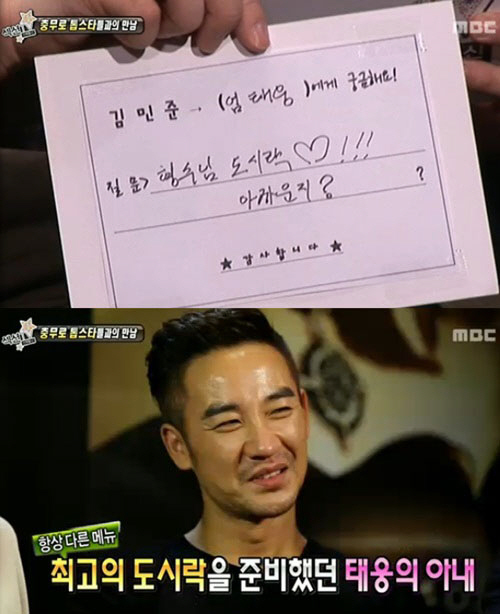 섹션TV
충무로 톱스타들과의 만남
MBC
김 민 준 → (엄 태웅 )에게 궁금해요!
질 문> 형수님 도시락♡!!!
아까운지? ?
★ 감 사 합 니 다 ★
충무로 톱스타들과의 만남
MBC
항상 다른 메뉴
최고의 도시락을 준비했던 태웅의 아내